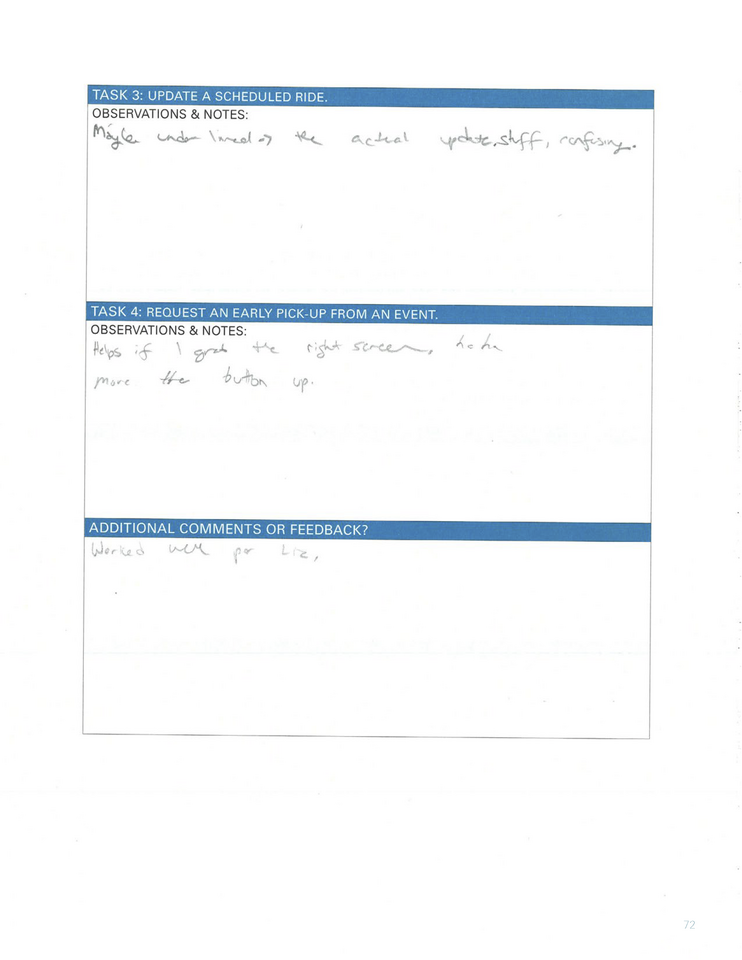 TASK 3: UPDATE A SCHEDULED RIDE.
OBSERVATIONS & NOTES:
Maybe under the actual update stuff, confusing.
TASK 4: REQUEST AN EARLY PICK-UP FROM AN EVENT.
OBSERVATIONS & NOTES:
Helps if I grab the right screen, haha
move the button up.
ADDITIONAL COMMENTS OR FEEDBACK?
Worked well for Liz,
72